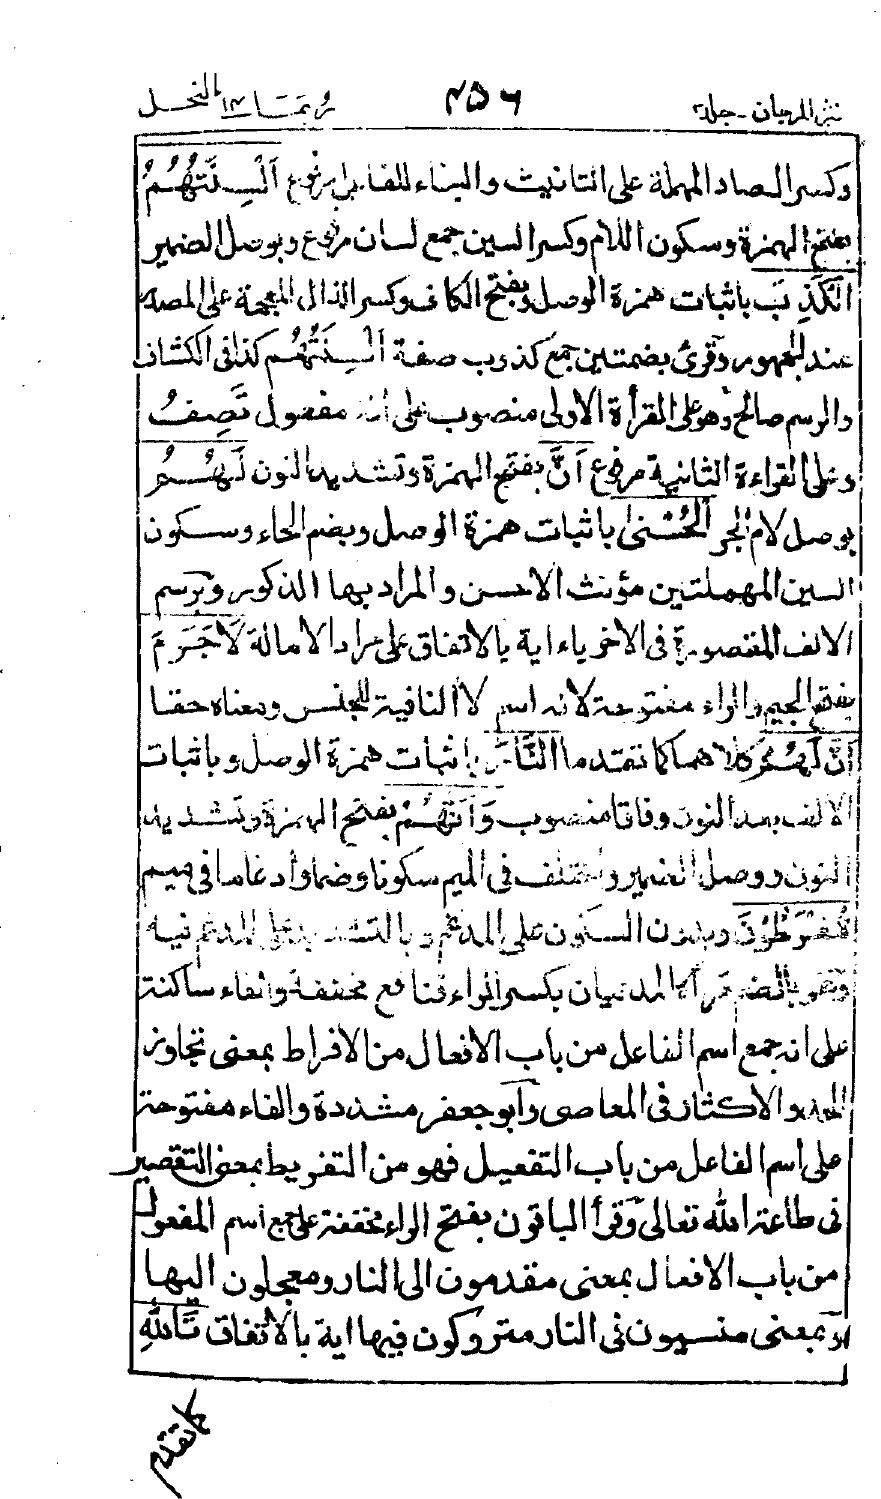 نثر المرجان - جلد٣ ٤٥٦ ربما ١٤ النحل
وكسر الصاد المهملة على التانيث والبناء للفاعل مرفوع اَلْسِنَتُهُمُ
بفتح الهمزة وسكون اللام وكسر السين جمع لسان مرفوع وبوصل الضمير
الْكَذِبَ باثبات همزة الوصل وبفتح الكاف وكسر الذال المعجمة على المصدر
عند الجمهور وقرئ بضمتين جمع كذوب صفة اَلْسِنَتُهُم كذا فى الكشاف
والرسم صالح وهو على القرأة الاولى منصوب على انه مفعول تَصِفُ
وعلى القراءة الثانية مرفوع اَنَّ بفتح الهمزة وتشديد النون لَهُمُ
بوصل لام الجر الْحُسْنٰى باثبات همزة الوصل وبضم الحاء وسكون
السين المهملتين مؤنث الاحسن والمراد بها الذكور وترسم
الالف المقصورة فى الاخر ياء اية بالاتفاق على مراد الامالة لَاجَرَمَ
بفتح الجيم والراء مفتوحة لانه اسم لا النافية للجنس ومعناه حقا
اَنَّ لَهُمُ كلاهما كما تقدما النَّارَ باثبات همزة الوصل وباثبات
الالف بعد النون وفاقا منصوب وَاَنَّهُمْ بفتح الهمزة وتشديد
النون ووصل الضمير واختلف فى الميم سكونا وضما وادغاما فى ميم
مُفْرَطُوْنَ وبدون السكون على المدغم وبالتشديد على المدغم فيه
وهو بالضم قرأ المدنيان بكسر الراء فنافع مخففة والفاء ساكنة
على انه جمع اسم الفاعل من باب الافعال من الافراط بمعنى تجاوز
الحد والاكثار فى المعاصى وابو جعفر مشددة والفاء مفتوحة
على اسم الفاعل من باب التفعيل فهو من التفريط بمعنى التقصير
فى طاعة الله تعالى وقرأ الباقون بفتح الراء مخففة على جمع اسم المفعول
من باب الافعال بمعنى مقدمون الى النار ومعجلون اليها
او بمعنى منسيون فى النار متروكون فيها اية بالاتفاق تَاللّٰهِ
كما تقدم